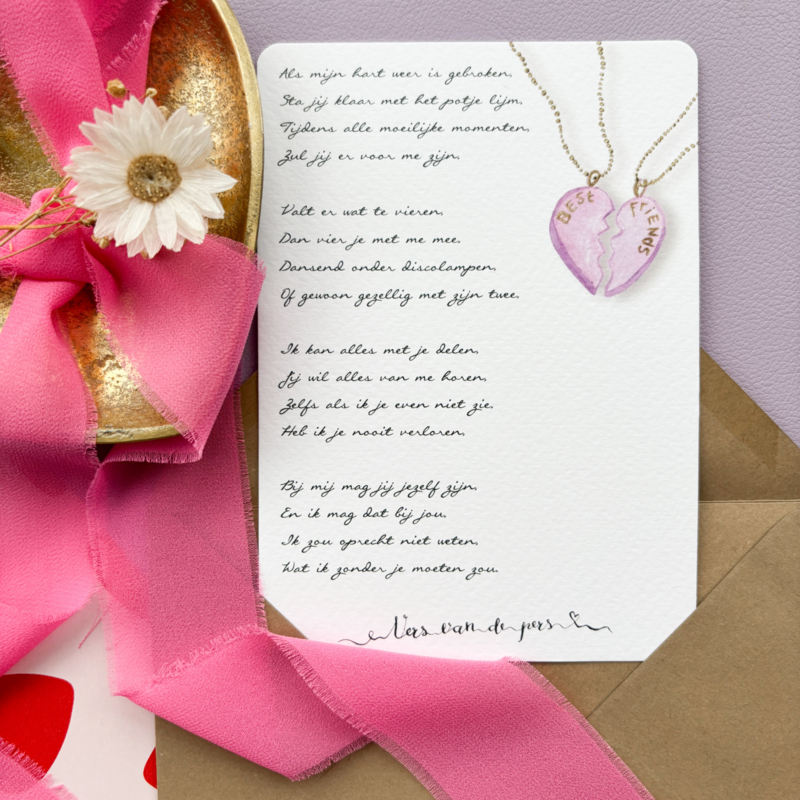 Als mijn hart weer is gebroken,
Sta jij klaar met het potje lijm,
Tijdens alle moeilijke momenten,
Zul jij er voor me zijn.
Valt er wat te vieren,
Dan vier je met me mee,
Dansend onder discolampen,
Of gewoon gezellig met zijn twee.
Ik kan alles met je delen,
Jij wil alles van me horen,
Zelfs als ik je even niet zie,
Heb ik je nooit verloren.
Bij mij mag jij jezelf zijn,
En ik mag dat bij jou,
Ik zou oprecht niet weten,
Wat ik zonder je moeten zou.
Vers van de pers
BEST
FRIENDS